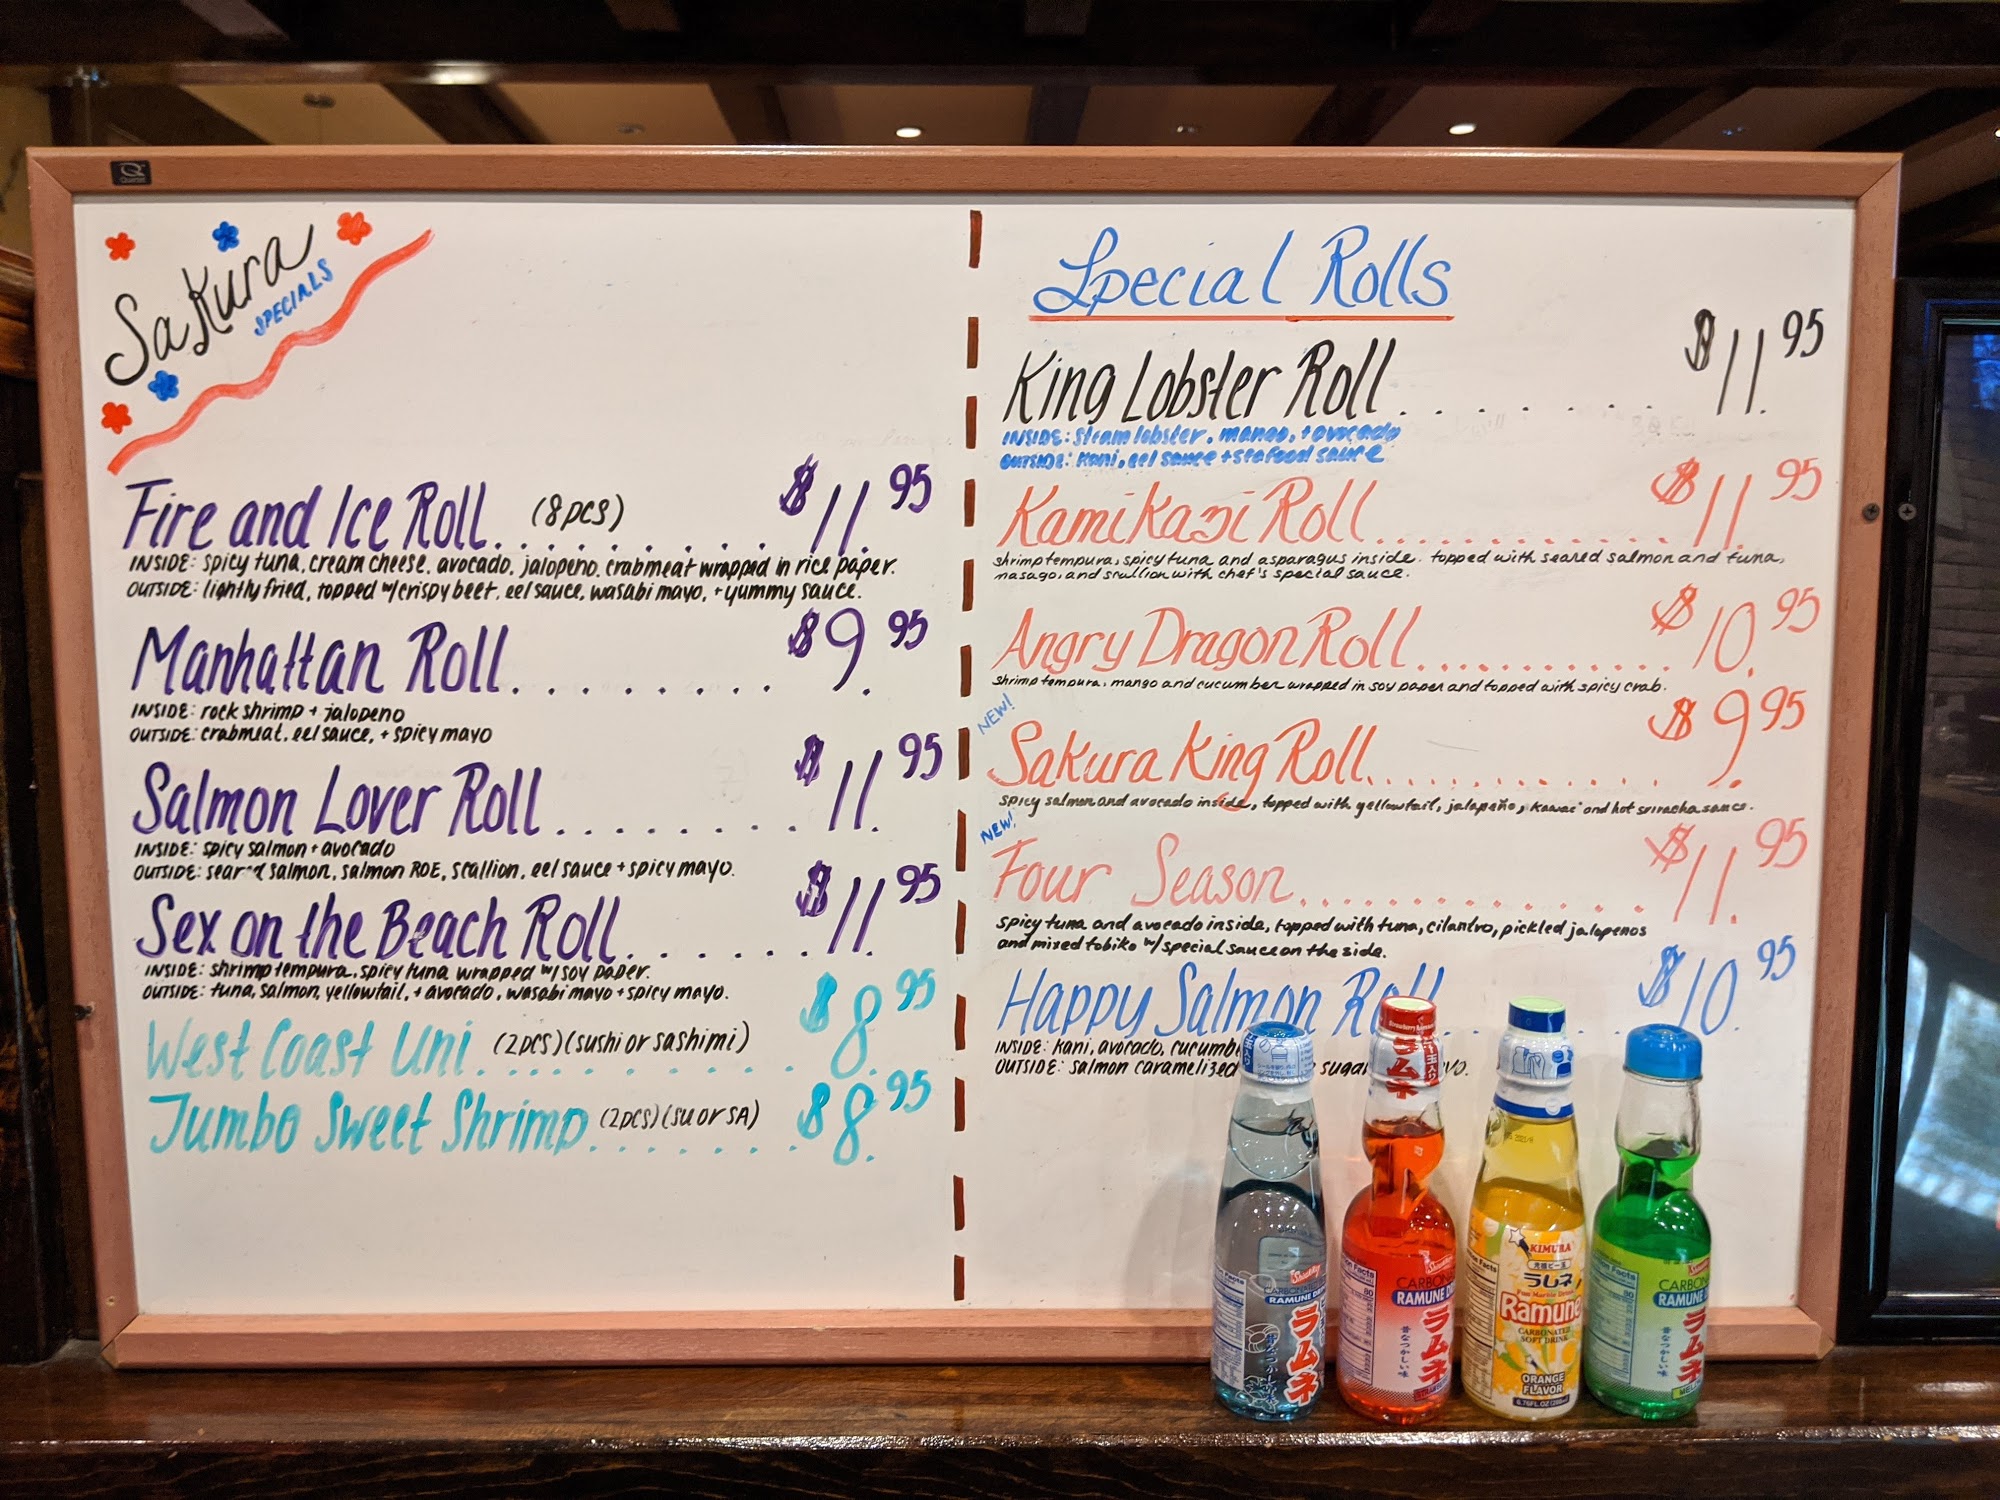 Quartet
SaKura
SPECIALS
Fire and Ice Roll (8pcs) .......... $11.95
INSIDE: spicy tuna, cream cheese, avocado, jalopeno, crabmeat wrapped in rice paper.
OUTSIDE: lightly fried, topped w/crispy beet, eel sauce, wasabi mayo, + yummy sauce.
Manhattan Roll ......... $9.95
INSIDE: rock shrimp + jalopeno
OUTSIDE: crabmeat, eel sauce, + spicy mayo
Salmon Lover Roll ......... $11.95
INSIDE: spicy salmon + avocado
OUTSIDE: seared salmon, salmon ROE, scallion, eel sauce + spicy mayo.
Sex on the Beach Roll ...... $11.95
INSIDE: shrimp tempura, spicy tuna wrapped w/ soy paper.
OUTSIDE: tuna, salmon, yellowtail, + avocado, wasabi mayo + spicy mayo.
West Coast Uni (2pcs)(sushi or sashimi) .......... $8.95
Jumbo Sweet Shrimp (2pcs)(su or SA) ........ $8.95
Special Rolls
King Lobster Roll ........ $11.95
INSIDE: steam lobster, mango, + avocado
OUTSIDE: kani, eel sauce + seafood sauce
Kamikazi Roll ............. $11.95
shrimp tempura, spicy tuna and asparagus inside. topped with seared salmon and tuna,
masago, and scallion with chef's special sauce.
Angry Dragon Roll ............ $10.95
shrimp tempura, mango and cucumber wrapped in soy paper and topped with spicy crab.
NEW!
Sakura King Roll ............. $9.95
spicy salmon and avocado inside, topped with yellowtail, jalapeño, kawai and hot sriracha sauce.
NEW!
Four Season ................ $11.95
spicy tuna and avocado inside, topped with tuna, cilantro, pickled jalapenos
and mixed tobiko w/ special sauce on the side.
Happy Salmon Roll ...... $10.95
INSIDE: kani, avocado, cucumb
OUTSIDE: salmon caramelized sugar
Shirakiku
CARBONATED
RAMUNE DRINK
ラムネ
ラムネ
Nutrition Facts
80
CARBONA
RAMUNE D
ラムネ
昔なつかしい味
Nutrition Facts
KIMURA
元祖ビー玉
ラムネ
Ramune
CARBONATED
SOFT DRINK
ORANGE
FLAVOR
6.76FL.OZ
Nutrition Facts
80
CARBON
RAMUNE D
ラムネ
昔なつかしい味
MEL